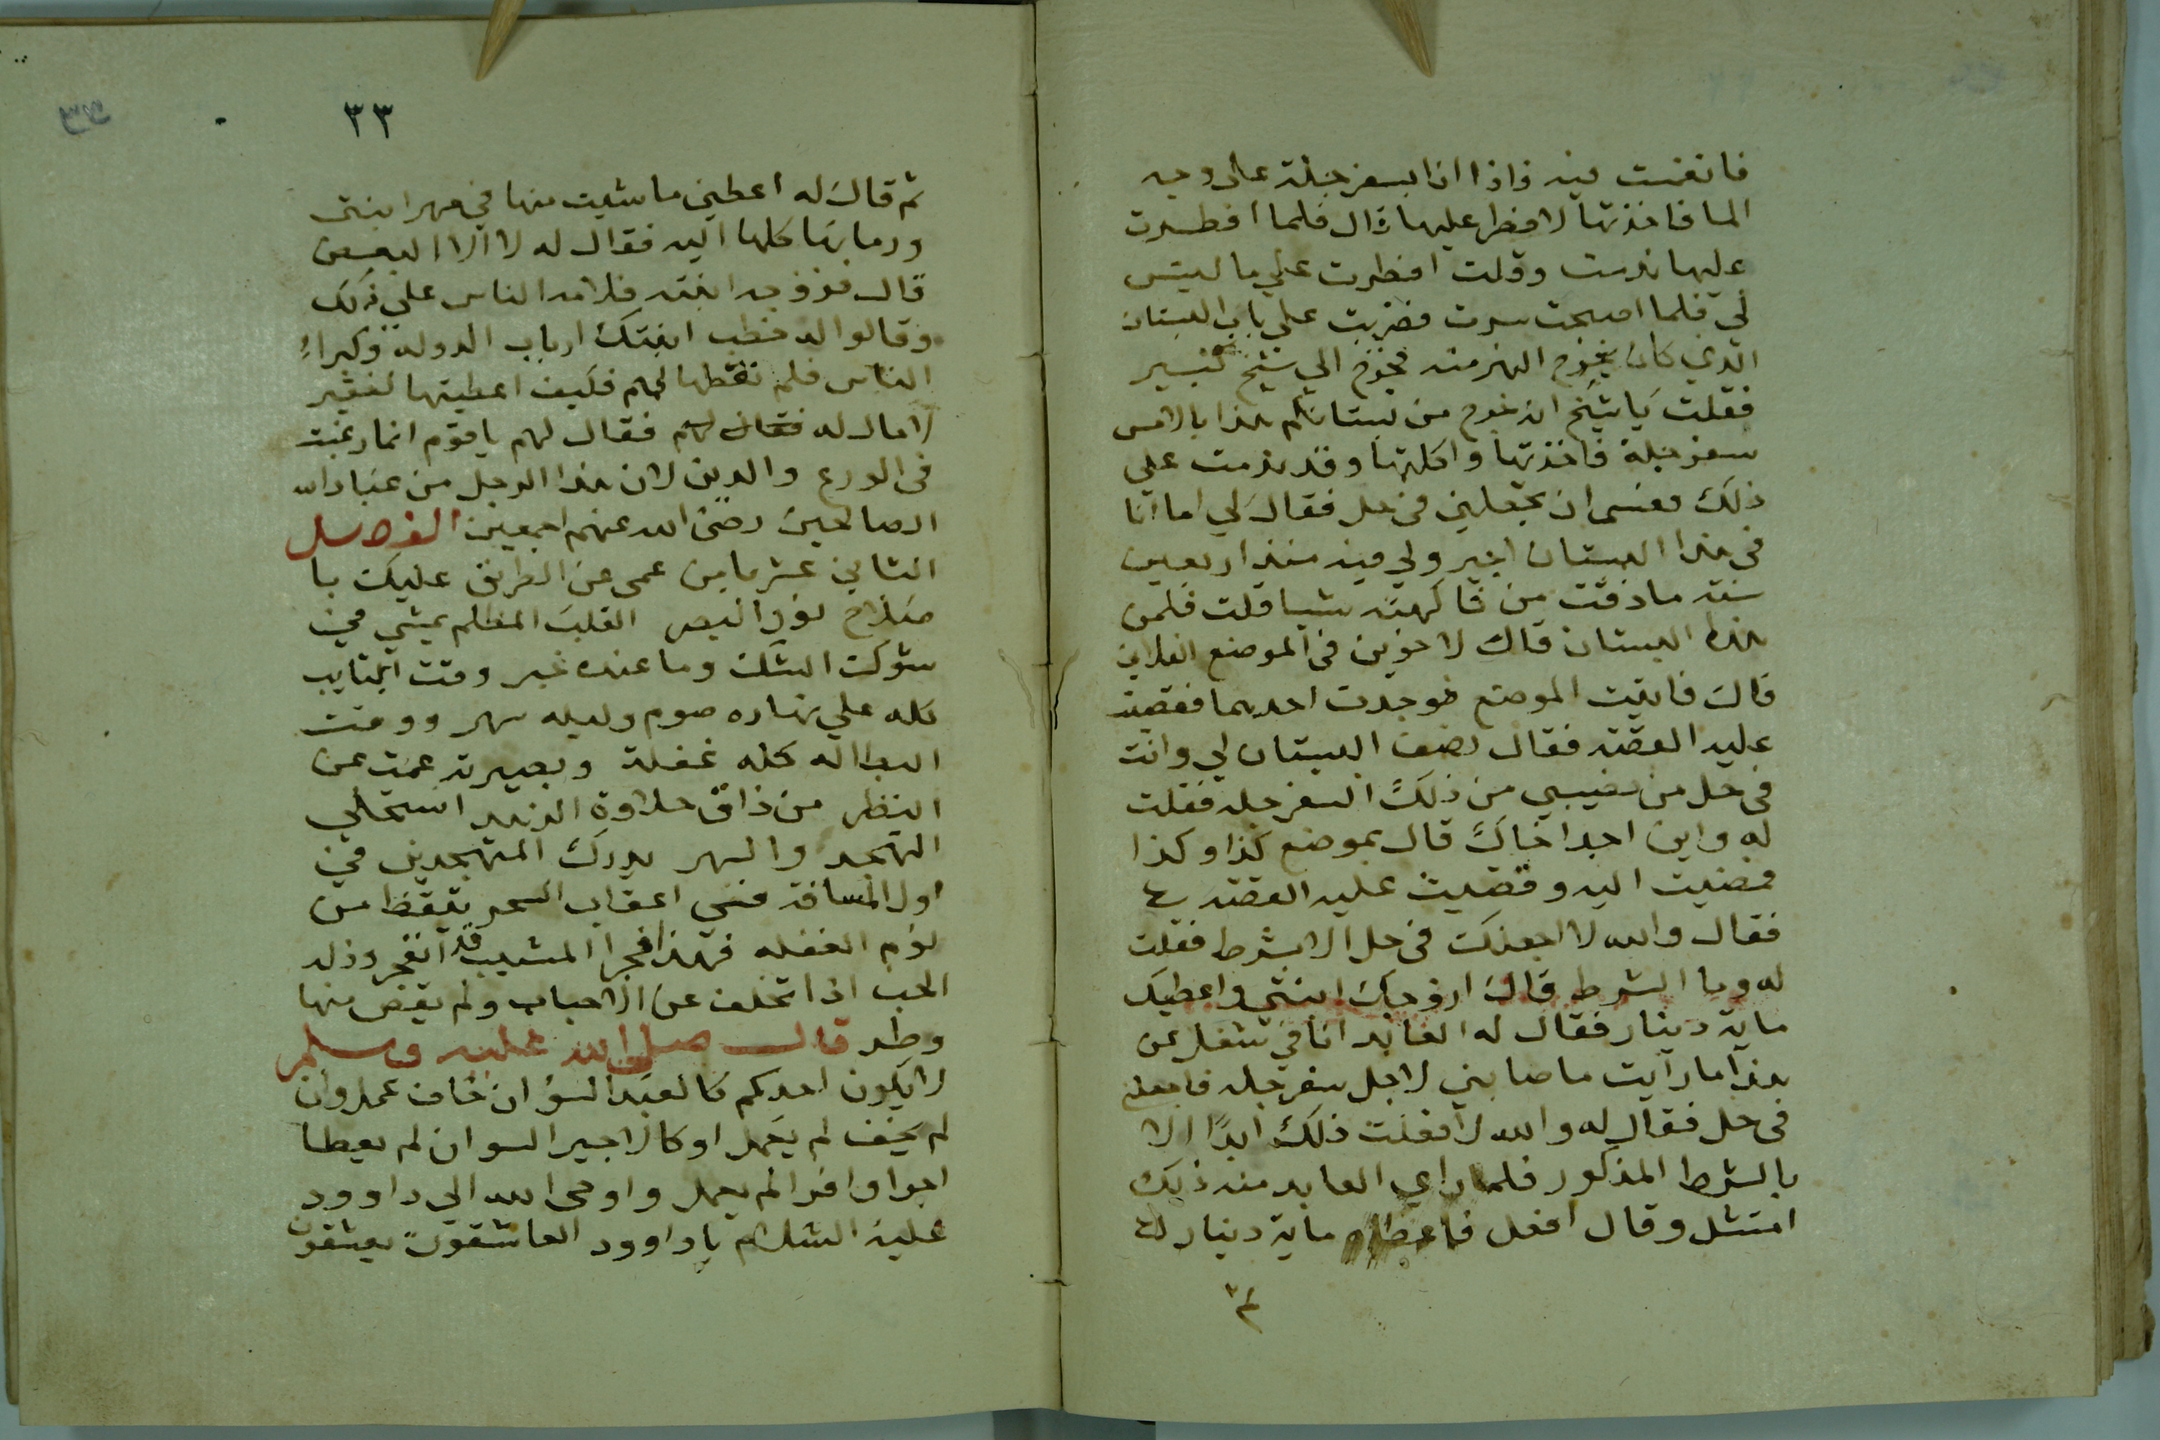 فانغمست فيه فاذا انا بسفرجلة على وجه
الما فاخذتها لافطر عليها قال فلما افطرت
عليها ندمت وقلت افطرت علي ما ليس
لي فلما اصبحت سرت فضربت علي باب البستان
الذي كان يخرج النهر منه فخرج الي شيخ كبير
فقلت يا شيخ انه خرج من بستانكم هذا بالامس
سفرجلة فاخذتها واكلتها وقد ندمت علي
ذلك فعسى ان تجعلني في حل فقال لي اما انا
في هذا البستان اجير ولي فيه منذ اربعين
سنة ما ذقت من فاكهته شيا قلت فلمن
هذا البستان قال لاخوين في الموضع الفلاني
قال فاتيت الموضع فوجدت احدهما فقصيت
عليه القصة فقال نصف البستان لي وانت
في حل من نصيبي من ذلك السفرجله فقلت
له واين اجد اخاك قال بموضع كذا وكذا
فمضيت اليه وقصيت عليه القصة
فقال والله لا اجعلك في حل الا بشرط فقلت
له وما الشرط قال ازوجك ابنتي واعطيك
ماية دينار فقال له العابد انا في شغل عن
هذا اما رايت ما اصابني لاجل سفرجله فاجعلني
في حل فقال له والله لا فعلت ذلك ابدًا الا
بالشرط المذكور فلما راي العابد منه ذلك
امتثل وقال افعل فاعطاه ماية دينار له
ثم
٣٣
ثم قال له اعطيني ما شيت منها في مهر ابنتي
ورما بها كلها اليه فقال له لا الا البعض
قال فزوجه ابنته فلامه الناس علي ذلك
وقالوا له خطب ابنتك ارباب الدوله وكبراء
الناس فلم تعطها لهم فكيف اعطيتها لفقير
لا مال له فقال لهم يا قوم انما رغبت
في الورع والدين لان هذا الرجل من عباد الله
الصالحين رضي الله عنهم اجمعين الفصل
الثاني عشر يا من عمى عن الطريق عليك با
صلاح نور البصر القلب المظلم يمشي في
شوك الشك وما عنده خبر وقت التايب
كله علي نهاره صوم وليله سهر ووقت
البطاله كله غفلة وبصيرته عمت عن
النظر من ذاق حلاوة الزهد استحلي
التهجد والسهر يدرك المتهجدين في
اول المسافة فني اعقاب السحر تيقظ من
نوم الغفله فهذا فجر المشيب قد انفجر وذله
المحب اذا تخلف عن الاحباب ولم يقض منها
وطر قال صلى الله عليه وسلم
لا يكون احدكم كالعبد السؤ ان خاف عمل وان
لم يخف لم يعمل او كالاجير السو ان لم يعطا
اجرا وافرا لم يعمل واوحى الله الي داوود
عليه السلام يا داوود العاشقون يعيشون